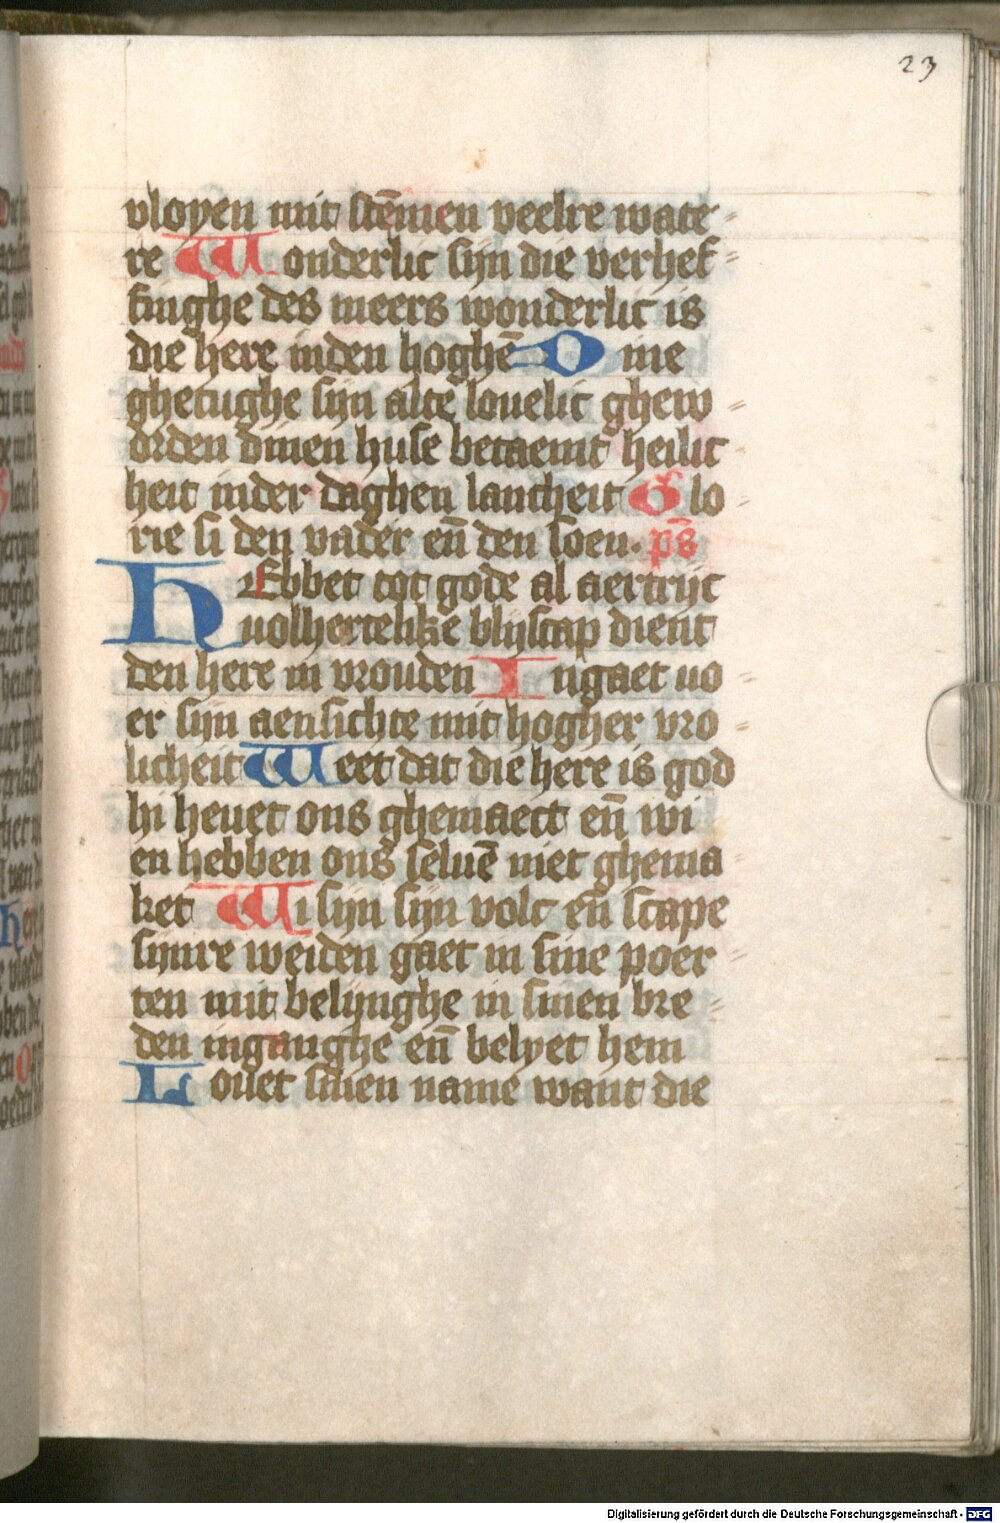 23
vloyen mit stēmen veelre wate⸗
re Wonderlic sijn die verhef⸗
finghe des meers wonderlic is
die here inden hoghē Dine
ghetughe sijn alte louelic ghew⸗
orden dinen huse betaemt heilic⸗
heit inder daghen lancheit Glo⸗
rie si den vader eñ den soen. ps̄
HEbbet tot gode al aertrijc
uolhertelike blijscap dient
den here in vrouden Ingaet uo⸗
er sijn aensichte mit hogher vro⸗
licheit Weet dat die here is god
hi heuet ons ghemaect eñ wi
en hebben ons seluē niet ghema⸗
ket Wi sijn sijn volc eñ scape
sijnre weiden gaet in sine poer⸗
ten mit belijnghe in sinen bre⸗
den inganghe eñ belyet hem
Louet sinen name want die
Digitalisierung gefördert durch die Deutsche Forschungsgemeinschaft - DFG